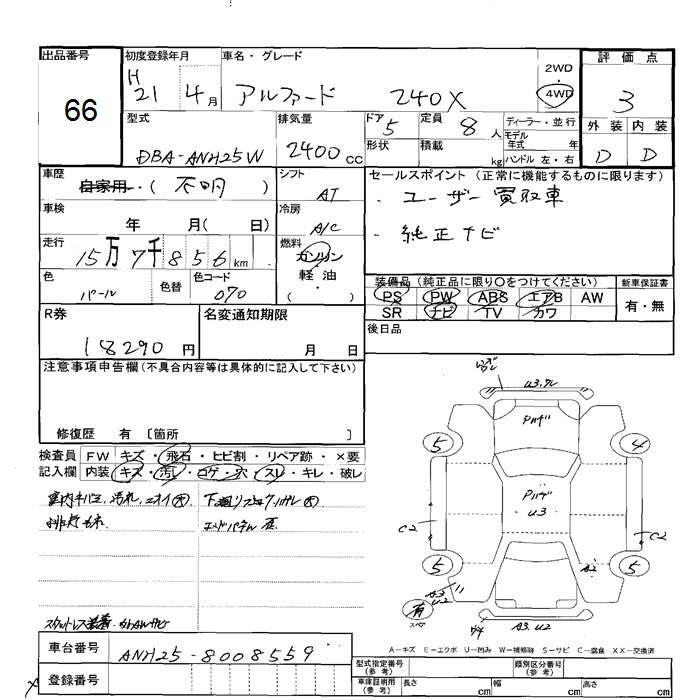 出品番号
66
初度登録年月
H 21 4月
車名・グレード
アルファード 240X
2WD
4WD
評価点
3
外装 内装
D D
型式
DBA-ANH25W
排気量
2400cc
ドア 5
形状
定員 8人
積載 kg
ディーラー・並行
モデル年式 年
ハンドル 左・右
車歴
自家用・(不明)
シフト
AT
セールスポイント(正常に機能するものに限ります)
・ユーザー買取車
・純正ナビ
車検
年 月( 日)
冷房
A/C
走行
15万7千856km
燃料
ガソリン
軽・油
( )
色
パール
色替
色コード
070
装備品(純正品に限り〇をつけてください)
PS PW ABS エアB AW
SR ナビ TV カワ
新車保証書
有・無
R券
18290円
名変通知期限
月 日
後日品
注意事項申告欄(不具合内容等は具体的に記入して下さい)
修復歴 有 〔箇所 〕
検査員記入欄
FW キズ・飛石・ヒビ割・リペア跡・×要
内装 キズ・汚れ・コゲ・穴・スレ・キレ・破レ
U3.
Pハゲ
5 4
Pハゲ
U3
C2 C2
5 5
A2
A3
U2
有
スペア
A3.U2
A-キズ E-エクボ U-凹み W-補修跡 S-サビ C-腐食 XX-交換済
車台番号
ANH25-8008559
登録番号
型式指定番号(参考)
類別区分番号(参考)
車庫証明用(参考)
長さ cm 幅 cm 高さ cm